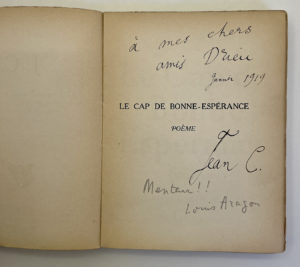 à mes chers
amis Drieu
Janvier 1919
LE CAP DE BONNE-ESPÉRANCE
POÈME
Jean C.
Menteur!!
Louis Aragon